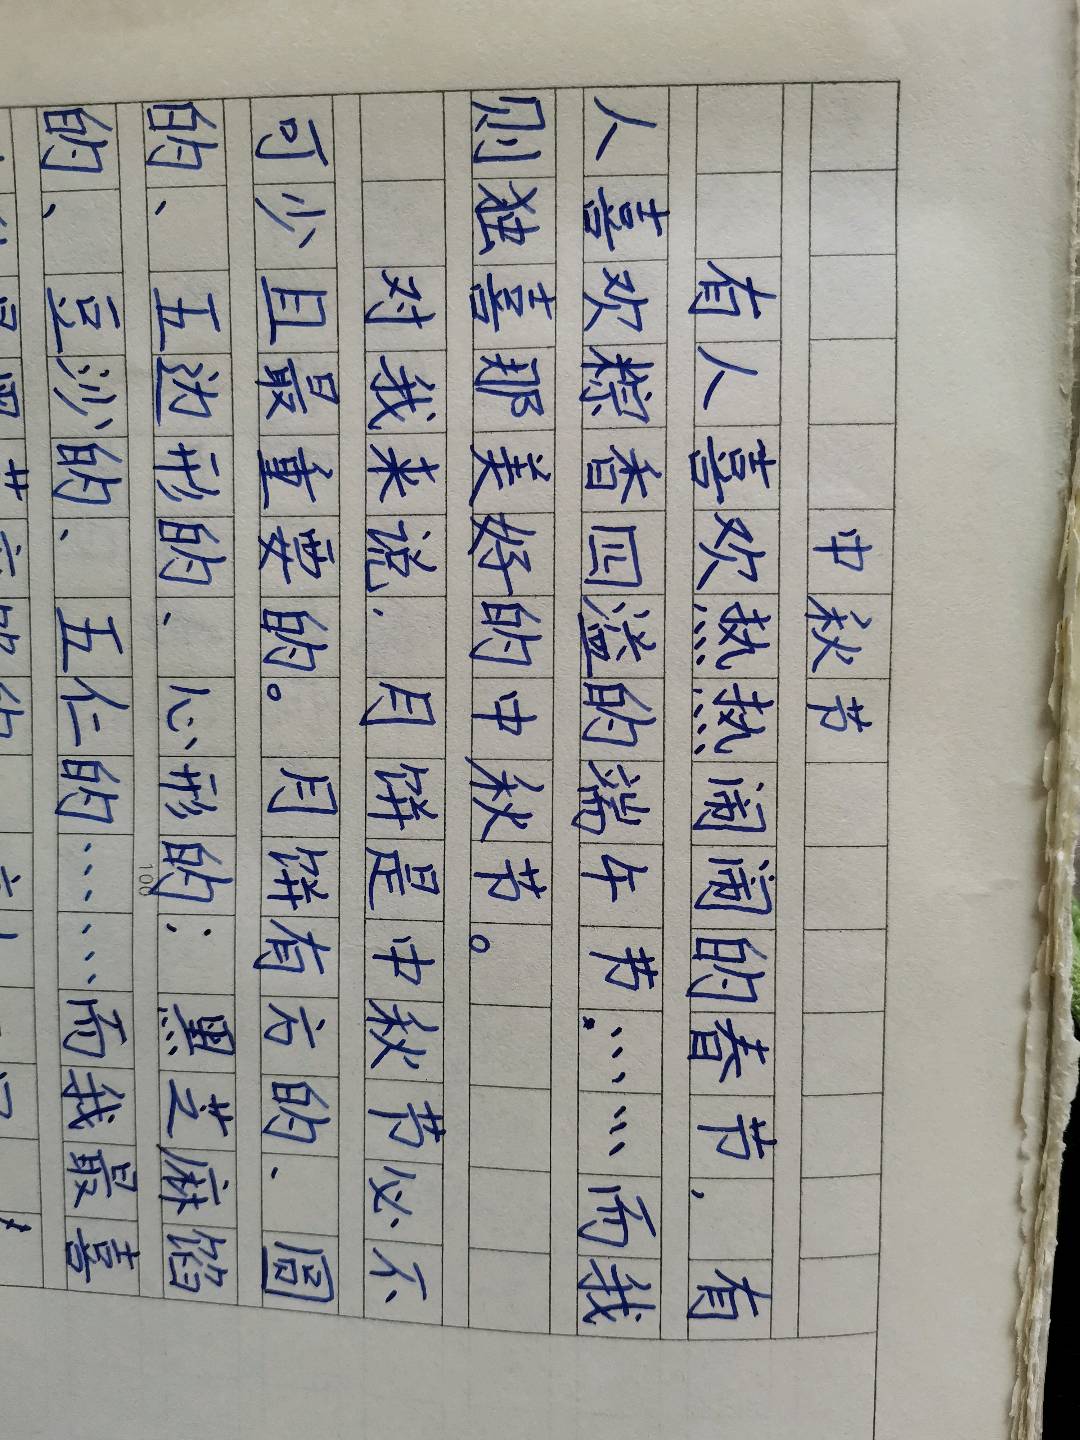 中秋节
有人喜欢热热闹闹的春节，有
人喜欢粽香四溢的端午节……而我
则独喜那美好的中秋节。
对我来说，月饼是中秋节必不
可少且最重要的。月饼有方的、圆
的、五边形的、心形的；黑芝麻馅
100
的、豆沙的、五仁的……而我最喜